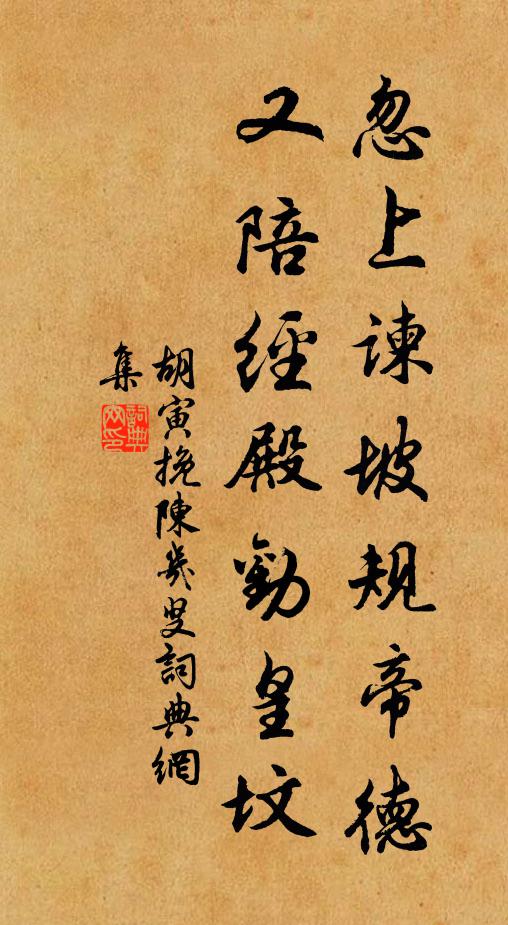 忽上諫坡規帝德
又陪經殿勸皇墳
胡寅挽陳幾叟詞典網
集
詞典
网印